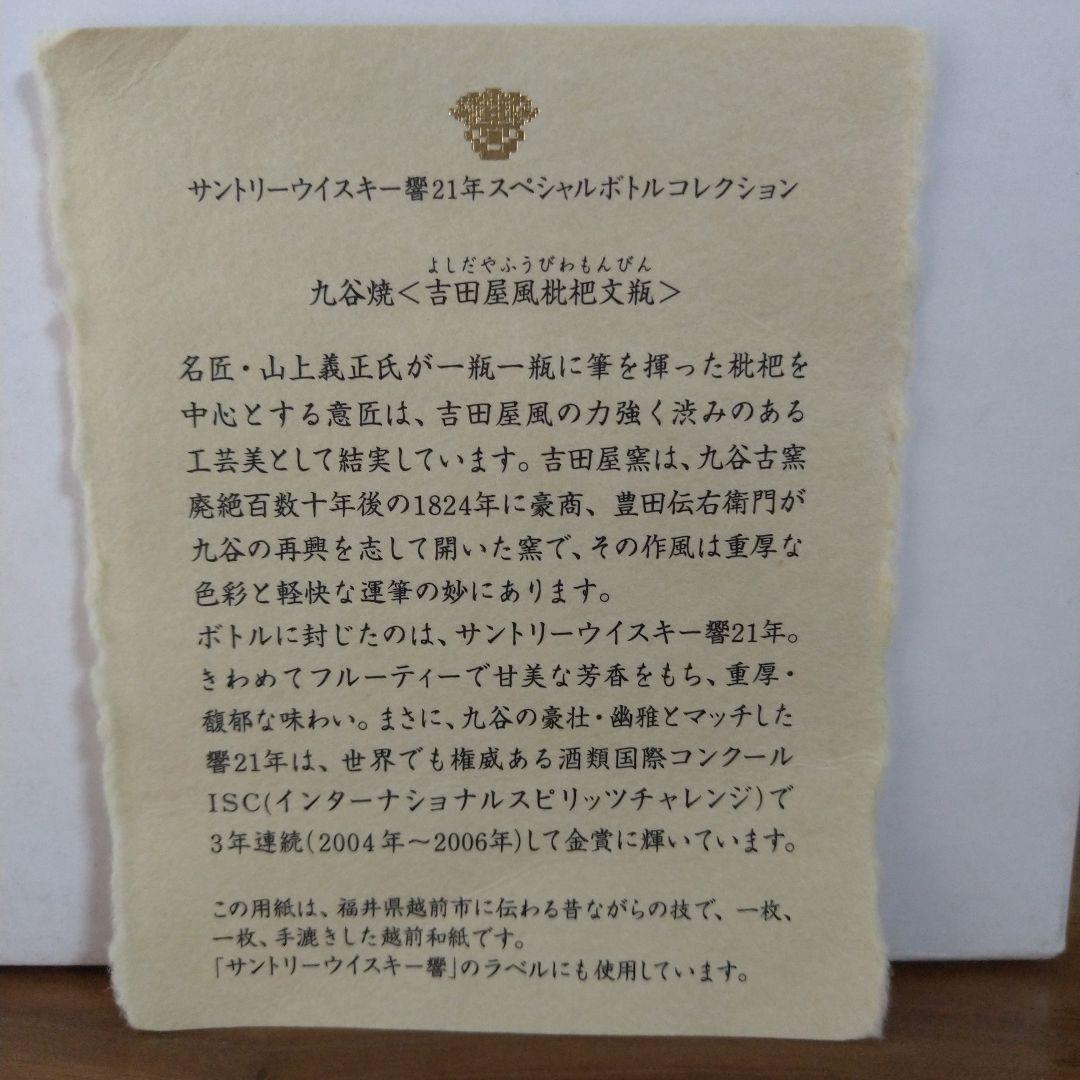 サントリーウイスキー響21年スペシャルボトルコレクション
よしだやふうびわもんびん
九谷焼＜吉田屋風枇杷文瓶＞
名匠・山上義正氏が一瓶一瓶に筆を揮った枇杷を
中心とする意匠は、吉田屋風の力強く渋みのある
工芸美として結実しています。吉田屋窯は、九谷古窯
廃絶百数十年後の1824年に豪商、豊田伝右衛門が
九谷の再興を志して開いた窯で、その作風は重厚な
色彩と軽快な運筆の妙にあります。
ボトルに封じたのは、サントリーウイスキー響21年。
きわめてフルーティーで甘美な芳香をもち、重厚・
馥郁な味わい。まさに、九谷の豪壮・幽雅とマッチした
響21年は、世界でも権威ある酒類国際コンクール
ISC(インターナショナルスピリッツチャレンジ)で
3年連続(2004年～2006年)して金賞に輝いています。
この用紙は、福井県越前市に伝わる昔ながらの技で、一枚、
一枚、手漉きした越前和紙です。
「サントリーウイスキー響」のラベルにも使用しています。